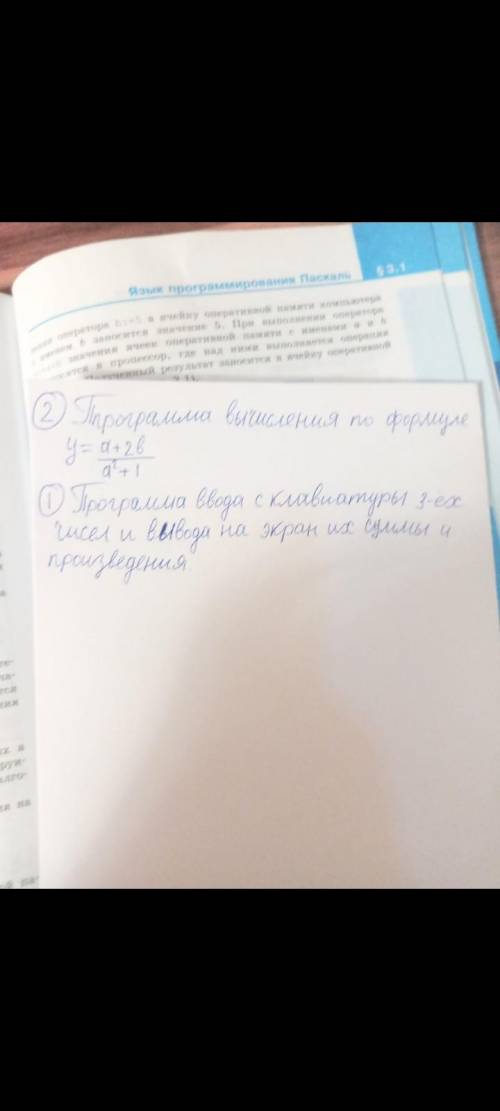 Язык программирования Паскаль
§ 3.1
оператора b:=5 в ячейку оперативной памяти компьютера
именем b заносится значение 5. При выполнении оператора
значения ячеек оперативной памяти с именами a и b
в процессор, где над ними выполняется операция
Полученный результат заносится в ячейку оперативной
② Ппрограмма вычисления по формуле
y = a+2b
a²+1
① Программа ввода с клавиатуры 3-ех
чисел и вывода на экран их суммы и
произведения